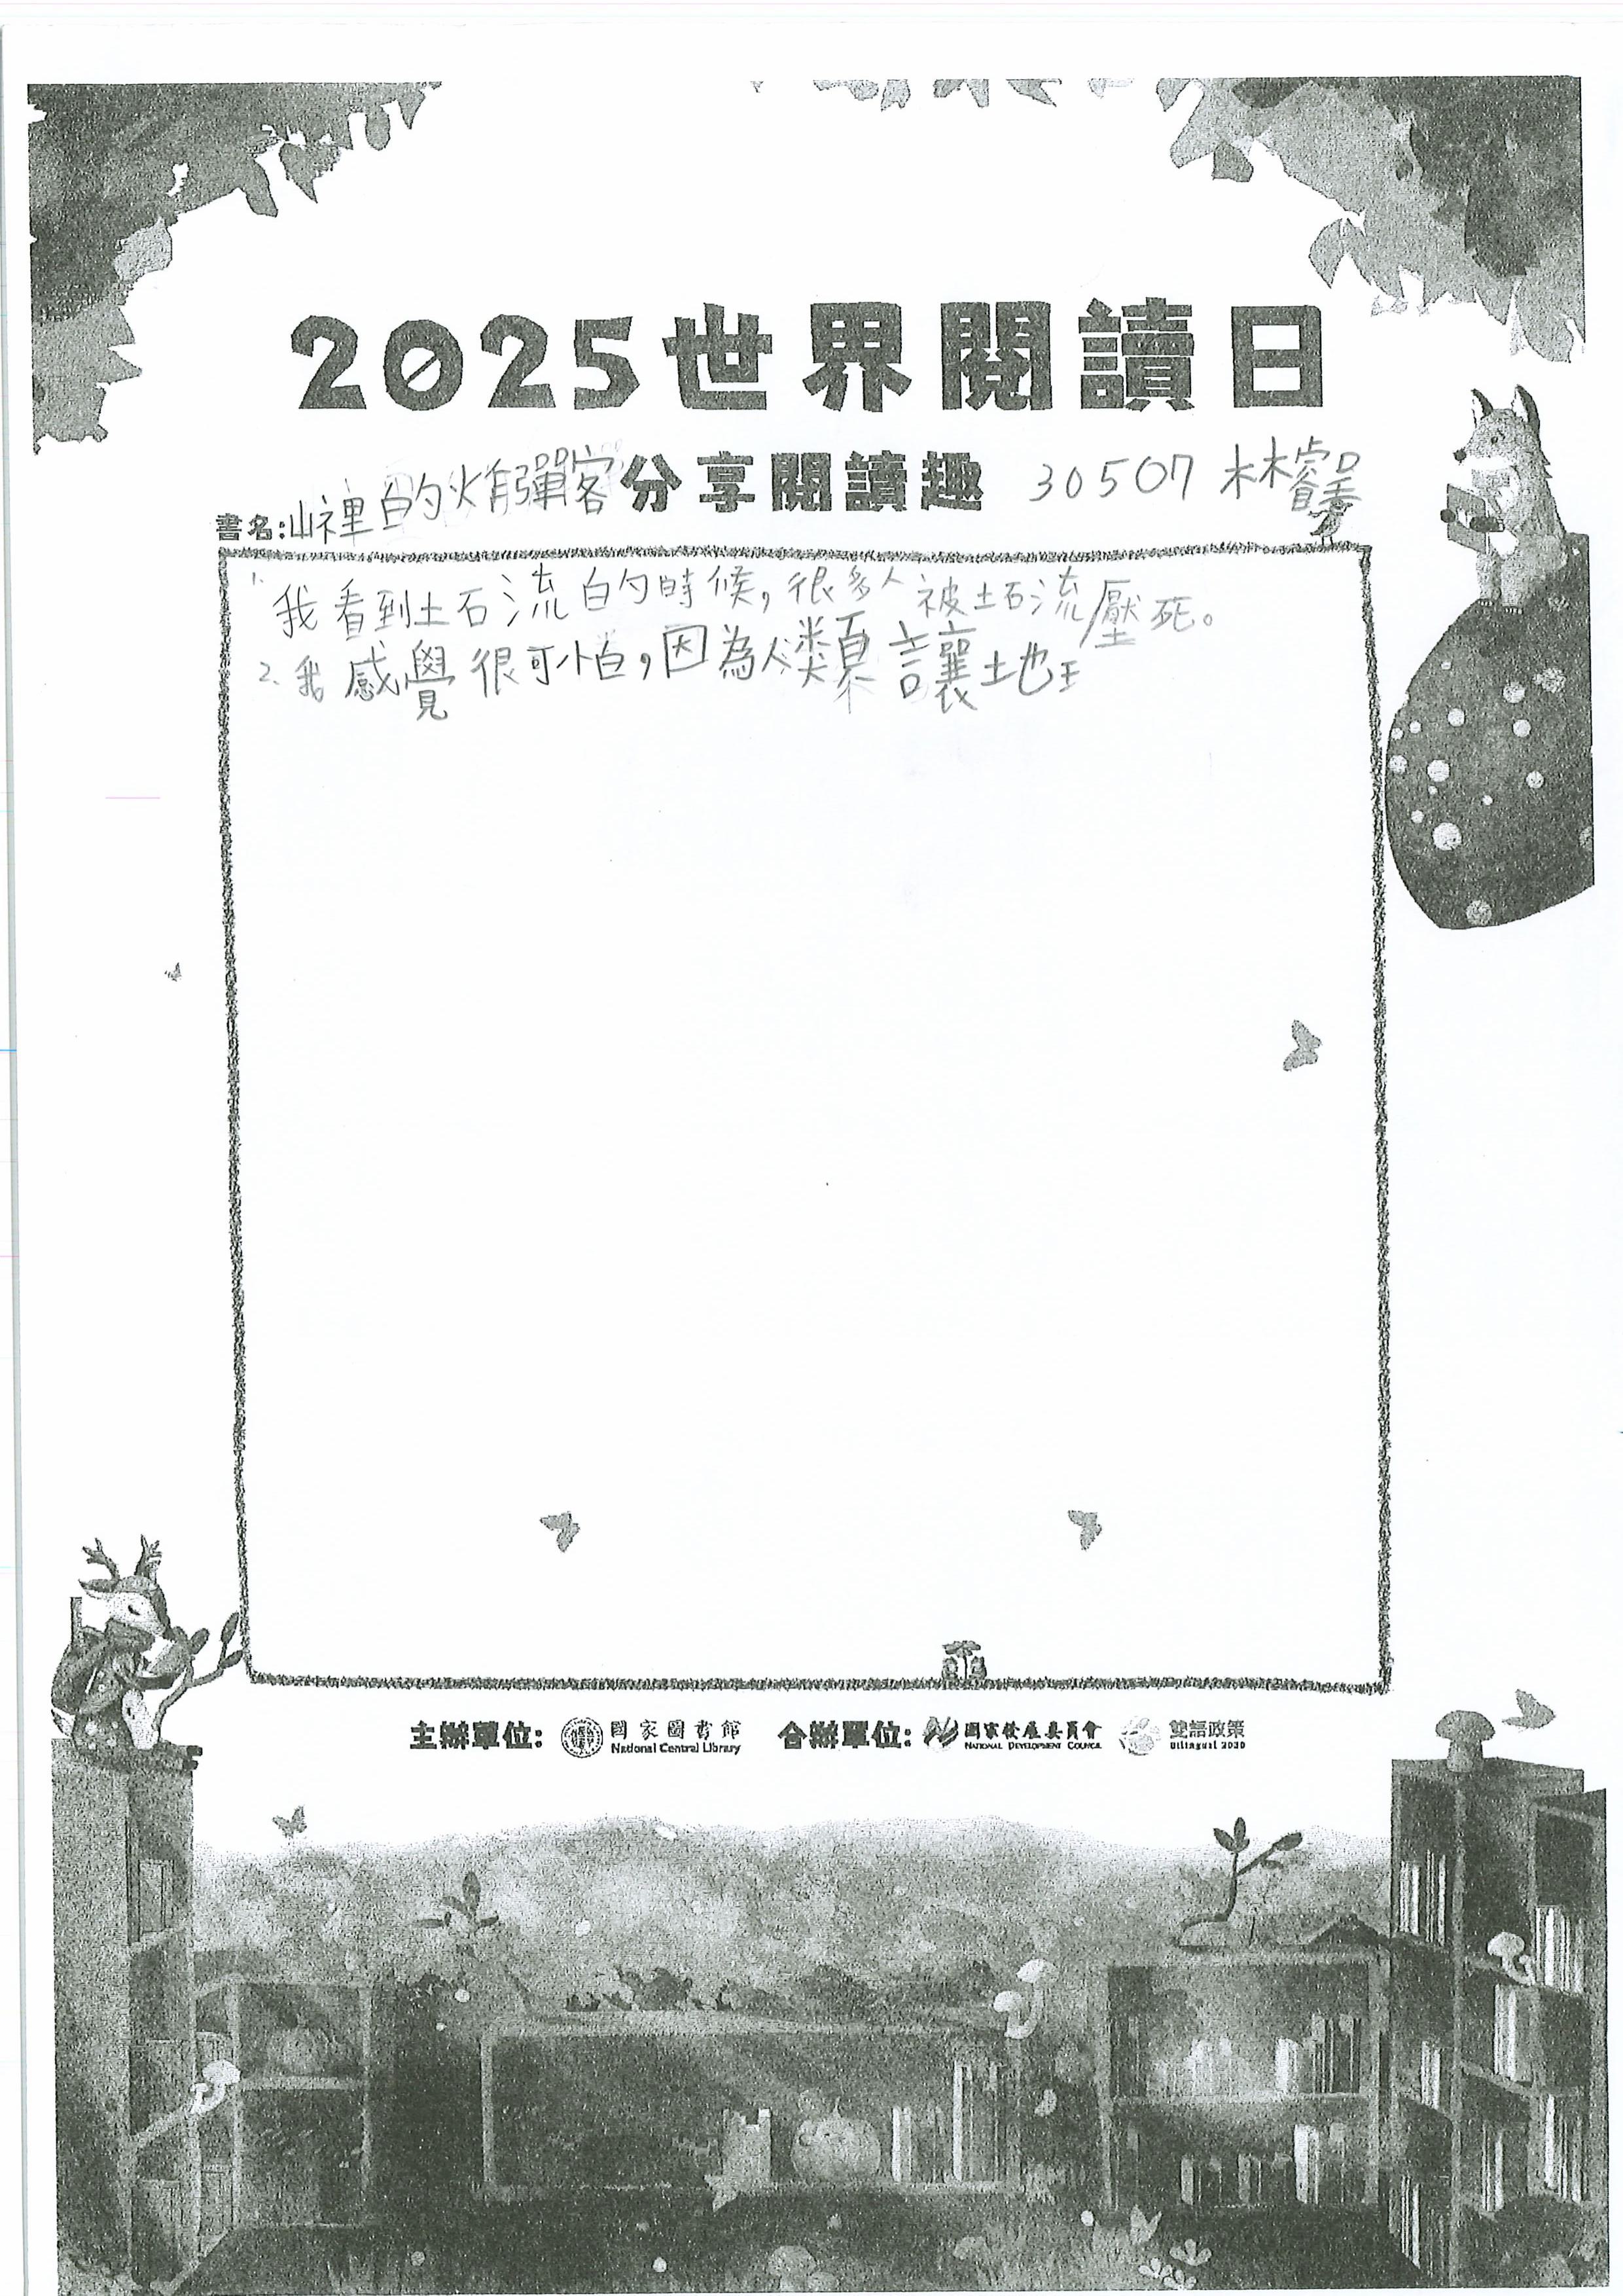 2025世界閱讀日
分享閱讀趣
30507 林睿
書名:山裡的炸彈客
1.我看到土石流的時候,很多人被土石流壓死。
2.我感覺很可怕,因為人類讓地
主辦單位: 國家圖書館 National Central Library 合辦單位: 國家發展委員會 NATIONAL DEVELOPMENT COUNCIL 雙語政策 Bilingual 2030